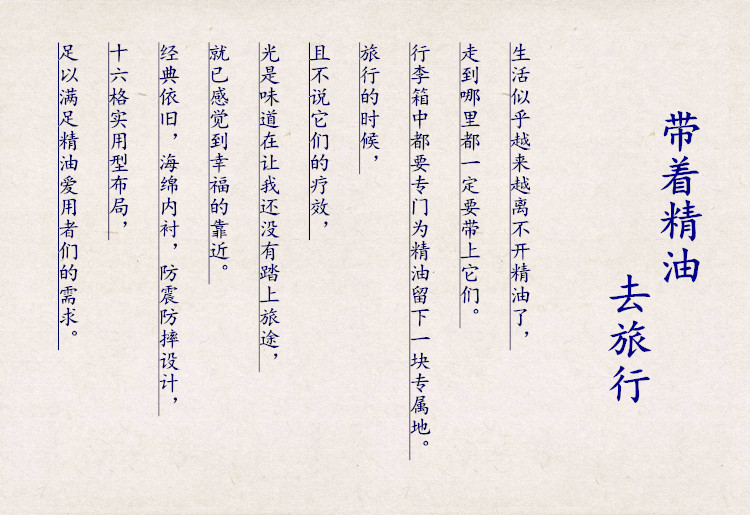 带着精油
去旅行
生活似乎越来越离不开精油了，
走到哪里都一定要带上它们。
行李箱中都要专门为精油留下一块专属地。
旅行的时候，
且不说它们的疗效，
光是味道在让我还没有踏上旅途，
就已感觉到幸福的靠近。
经典依旧，海绵内衬，防震防摔设计，
十六格实用型布局，
足以满足精油爱用者们的需求。